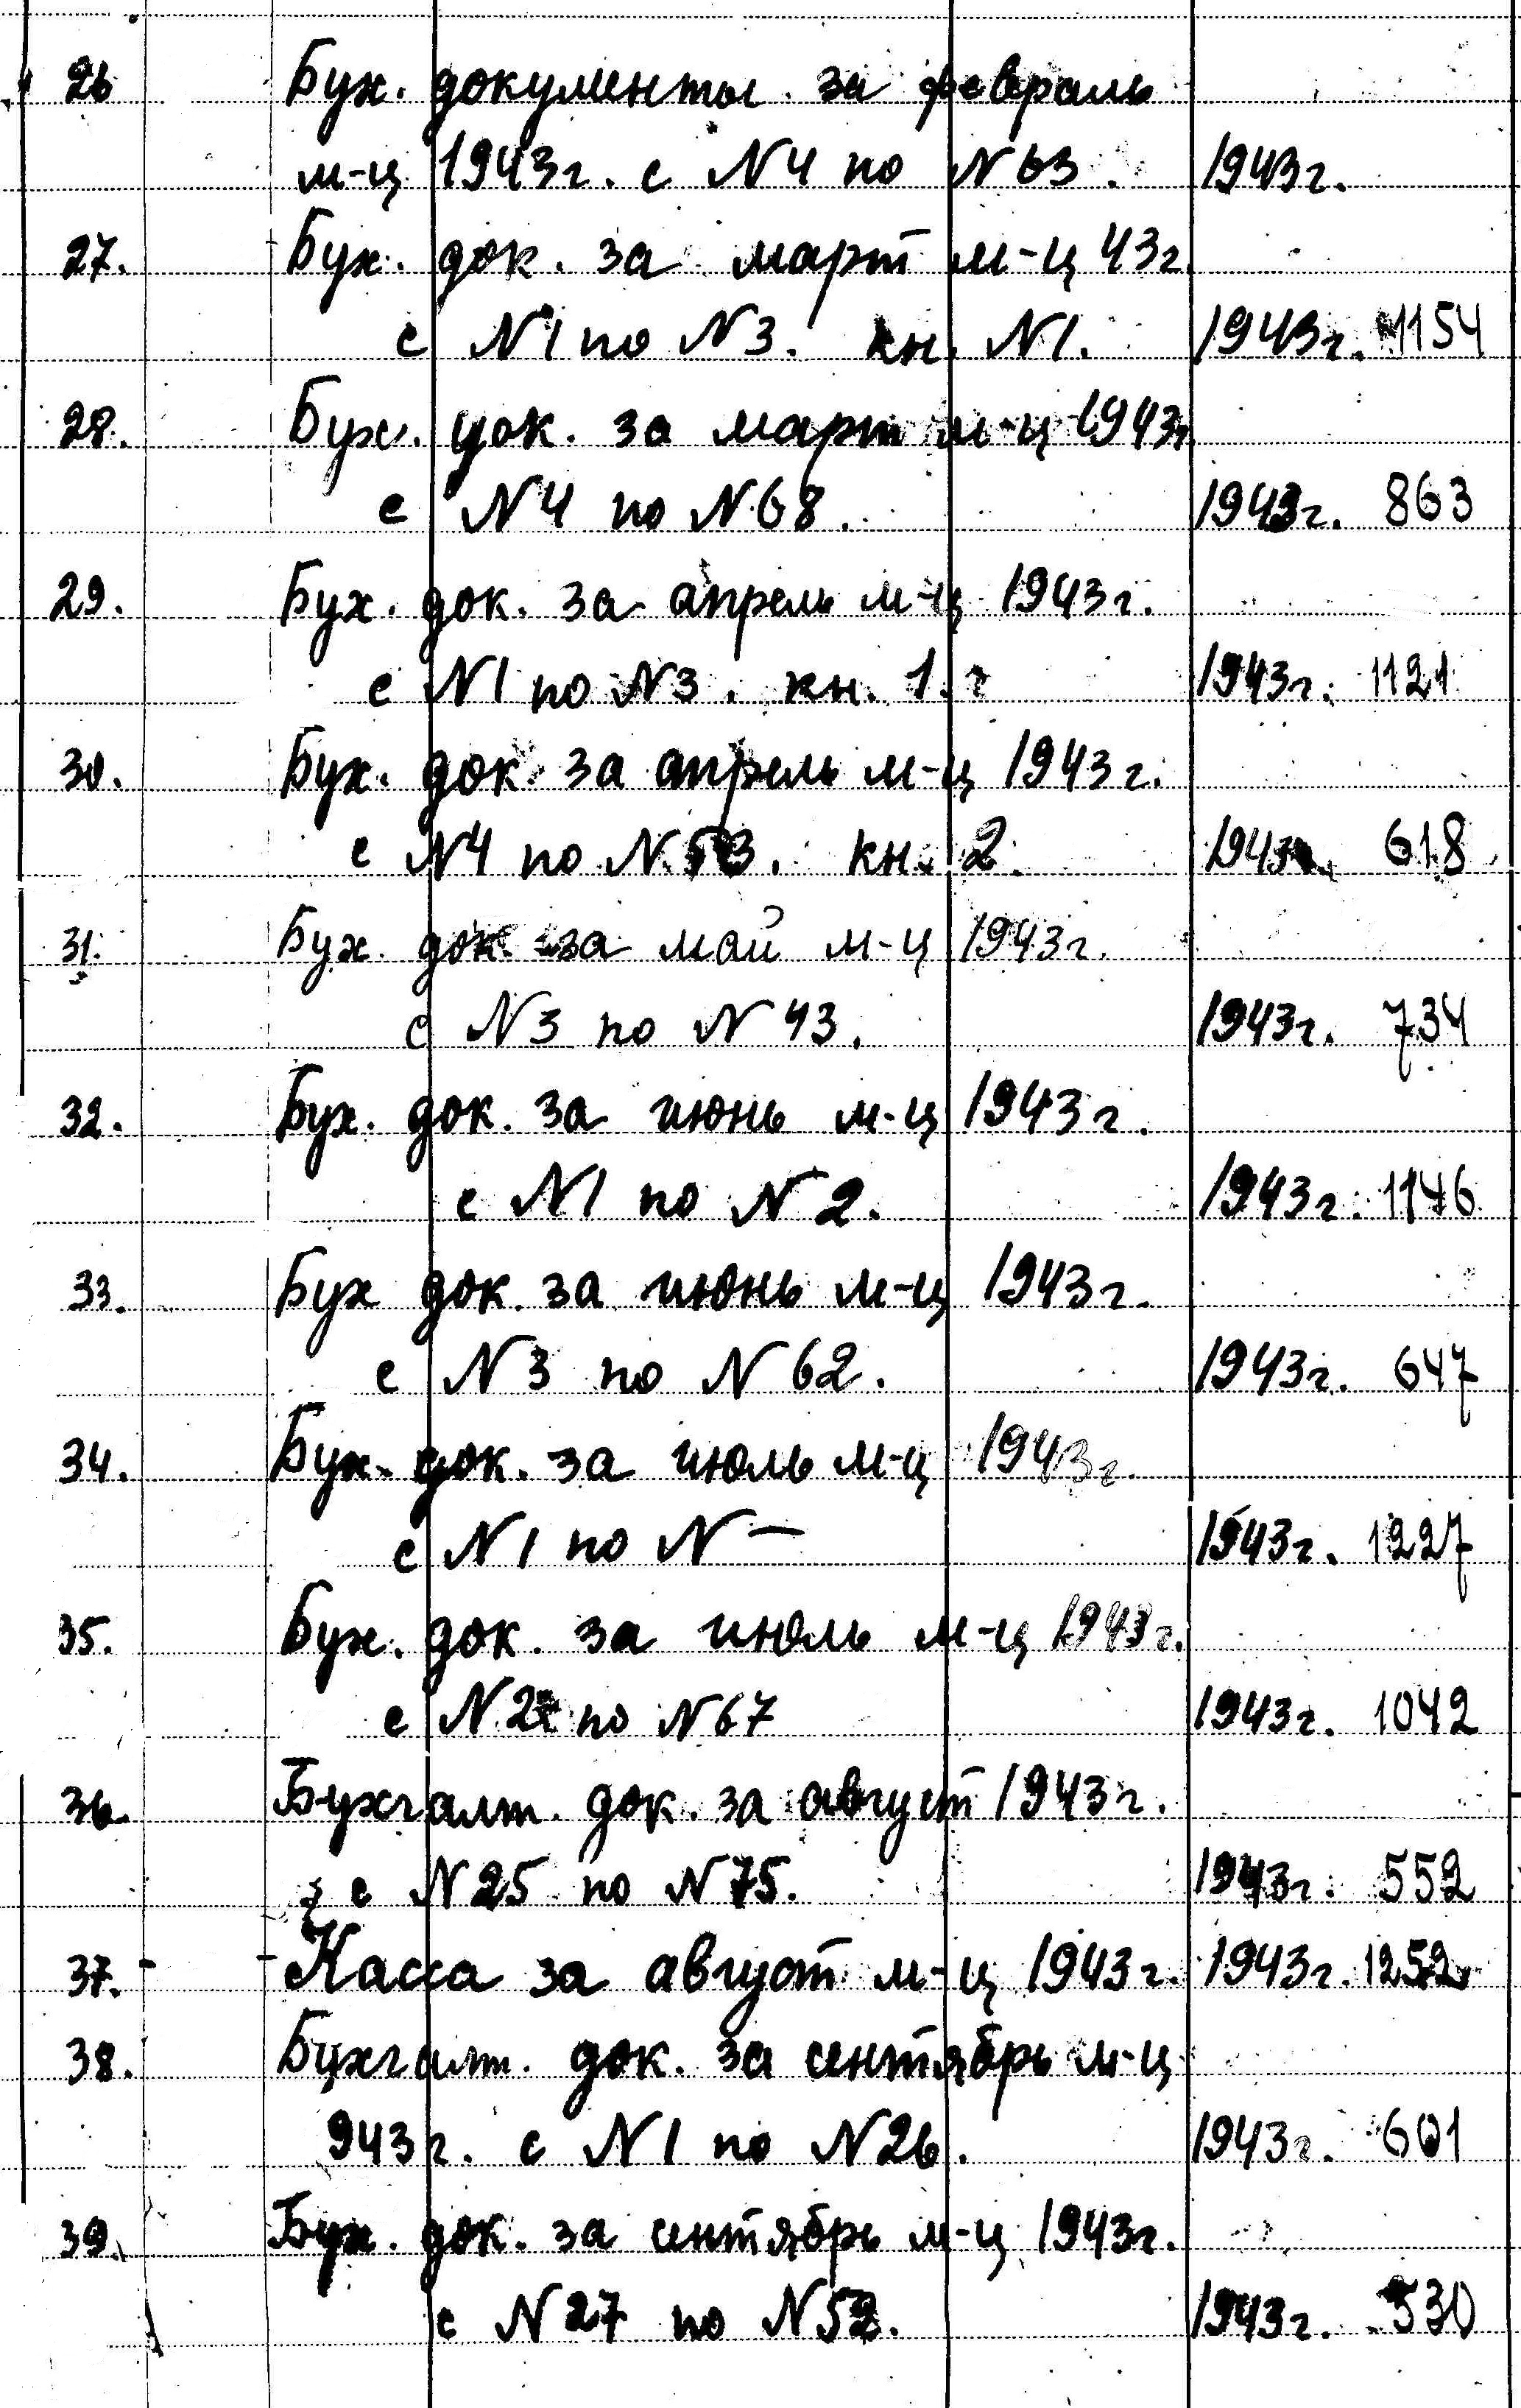 26 Бух. документы за февраль
м-ц 1943г. с N4 по N63. 1943г.
27. Бух. док. за март м-ц 43г.
с N1 по N3. кн. N1. 1943г. 1154
28. Бух. док. за март м-ц 1943г
с N4 по N68. 1943г. 863
29. Бух. док. за апрель м-ц 1943г.
с N1 по N3. кн. 1. 1943г. 1121
30. Бух. док. за апрель м-ц 1943г.
с N4 по N53. кн. 2. 1943г. 618
31. Бух. док. за май м-ц 1943г.
с N3 по N43. 1943г. 734
32. Бух. док. за июнь м-ц 1943г.
с N1 по N2. 1943г. 1146
33. Бух док. за июнь м-ц 1943г.
с N3 по N62. 1943г. 647
34. Бух. док. за июль м-ц 1943г.
с N1 по N — 1943г. 1227
35. Бух. док. за июль м-ц 1943г.
с по N67 1943г. 1042
36. Бухгалт. док. за август 1943г.
с N25 по N75. 1943г. 552
37. Касса за август м-ц 1943г. 1943г. 1252
38. Бухгалт. док. за сентябрь м-ц
943г. с N1 по N26. 1943г. 601
39. Бух. док. за сентябрь м-ц 1943г.
с N27 по N52. 1943г. 530